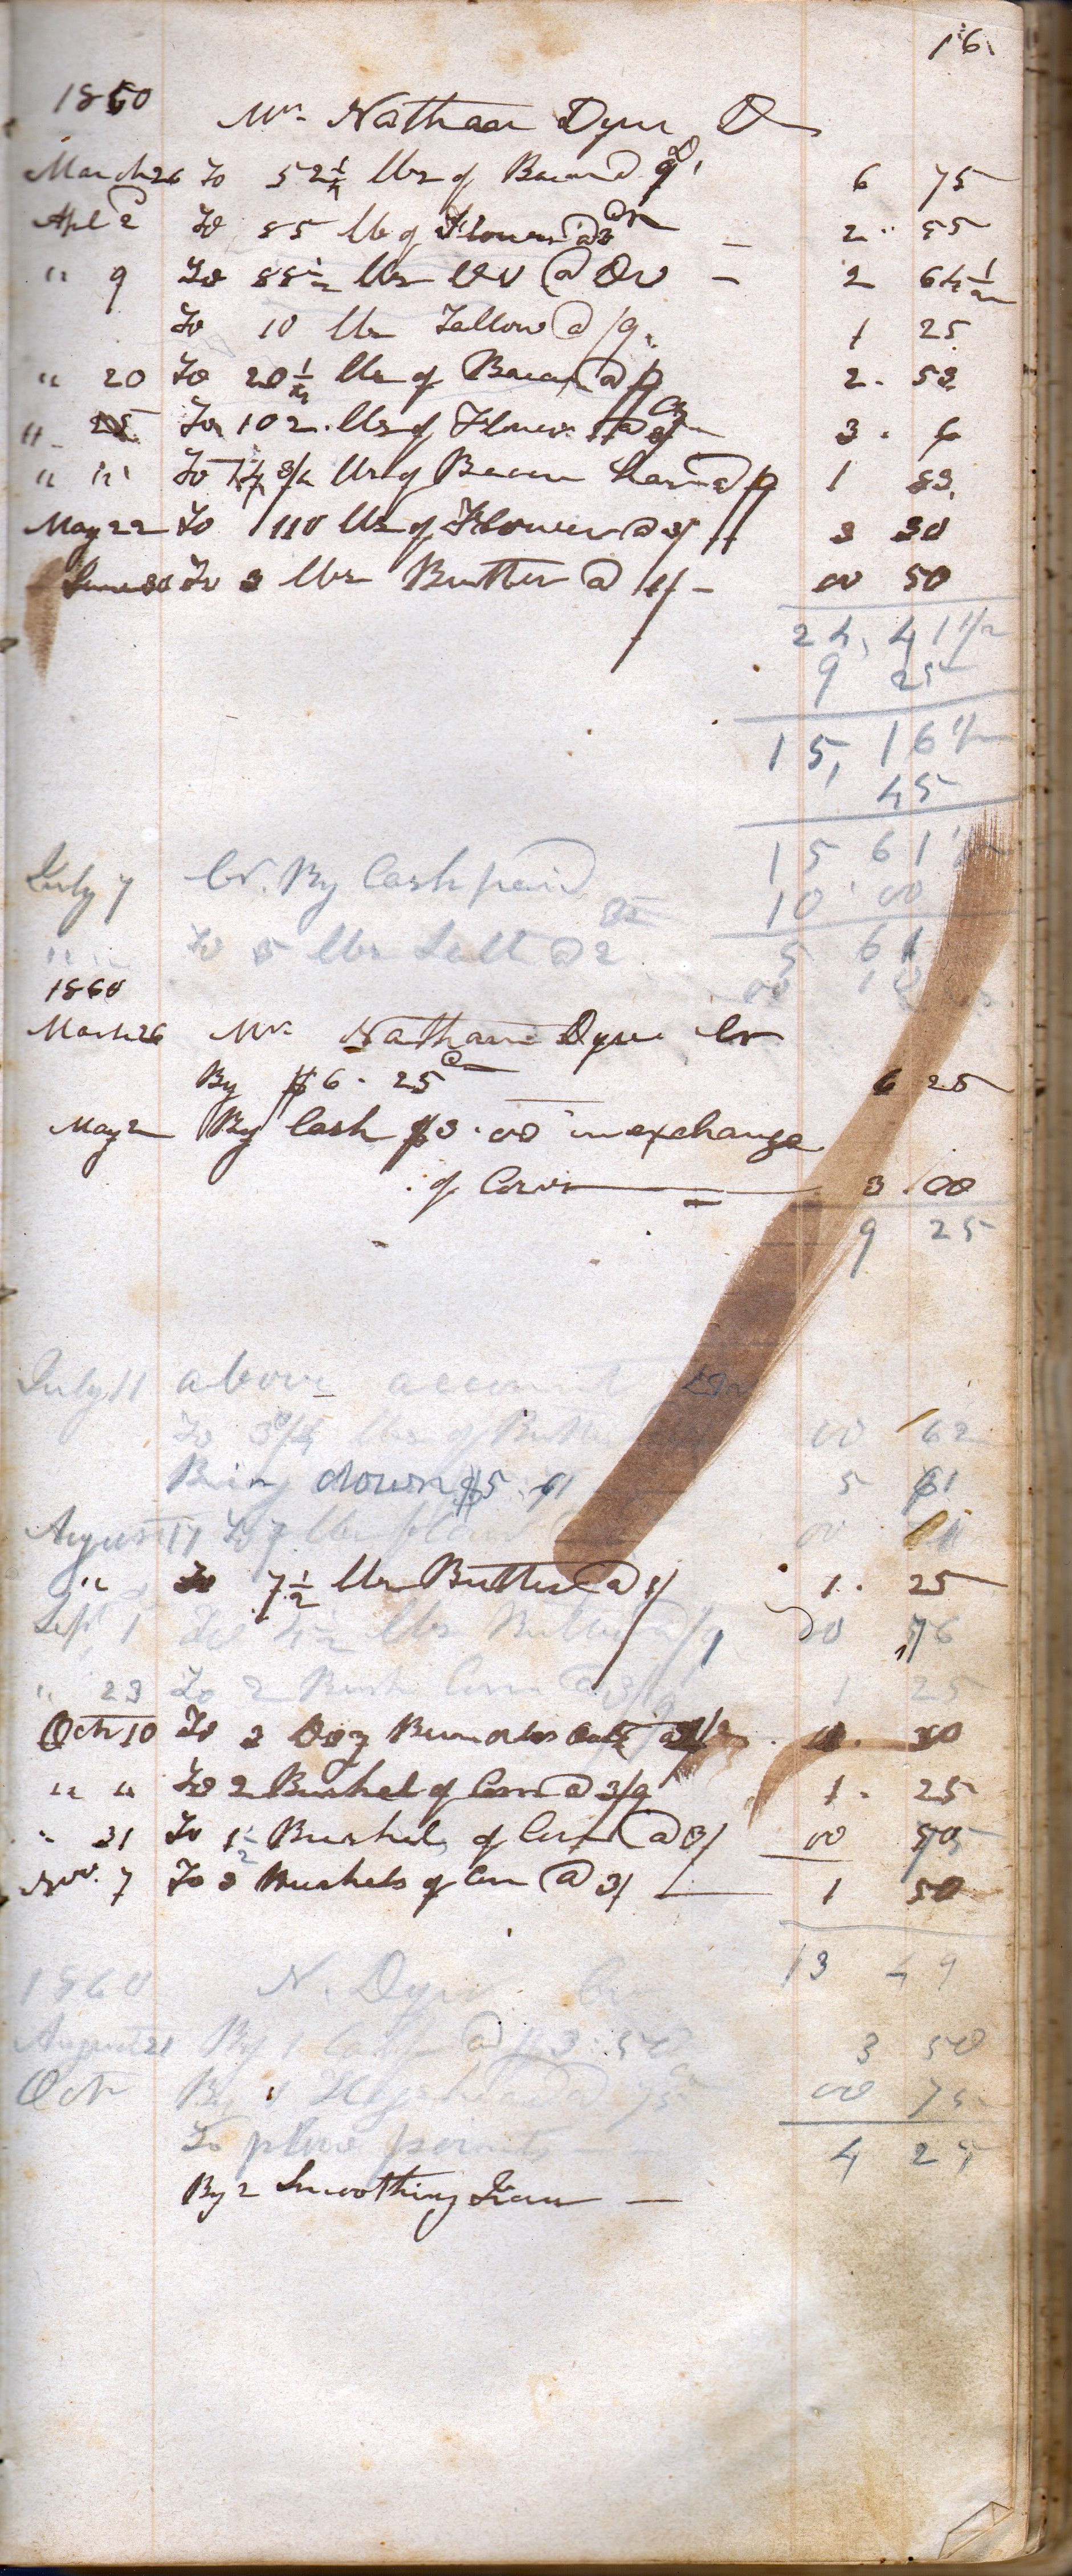 16
1860
Mr. Nathan Dyer Dr
March 26 To 52 1/2 lbs of Bacon @ 9d 6 75
Apl 2 To 85 lb of Flower @ 3 cts — 2 55
" 9 To 88 1/2 lbs Do @ Do — 2 64 1/2
To 10 lbs Tallow @ /9. 1 25
" 20 To 20 1/4 lbs of Bacon @ 2. 53
" 25 To 102 lbs of Flower @ 3 cts 3. 6
" " To 14 3/4 lbs of Bacon ham @ 1 83
May 22 To 110 lbs of Flower @ 3 3 30
June 30 To 3 lbs Butter @ 1/ — 00 50
24, 41 1/2
9 25
15, 16 1/2
45
15 61 1/2
July 7 Cr. By Cash paid 10 00
5 61
" " To 5 lbs Salt @ 2 00 10
1860
March 26 Mr. Nathan Dyer Cr
By $6.25 c 6 25
May 2 By Cash $3.00 in exchange
of Corn 3.00
9 25
July 11 above account Dr
To 3 3/4 lbs of Butter 00 62
Bring down $5.61 5 61
August 17 To 7 lbs 00
" To 7 1/2 lbs Butter @ 1/ 1. 25
Sept 1 To 4 1/2 lbs Butter @ 1/ 00 76
" 23 To 2 Bush Corn @ 3/9 1 25
Oct 10 To 3 Doz Bundles Oats 30
" " To 2 Bushel of Corn @ 3/9 1. 25
" 31 To 1 1/2 Bushel of Corn @ 3/ 00 75
Nov. 7 To 3 Bushels of Corn @ 3/ 1 50
13 49
1860 N. Dyer Cr
August 21 By 1 Calf @ $3.50 3 50
Oct By 1 @ 75 00 75
To plow points 4 25
By 2 Smoothing Irons —